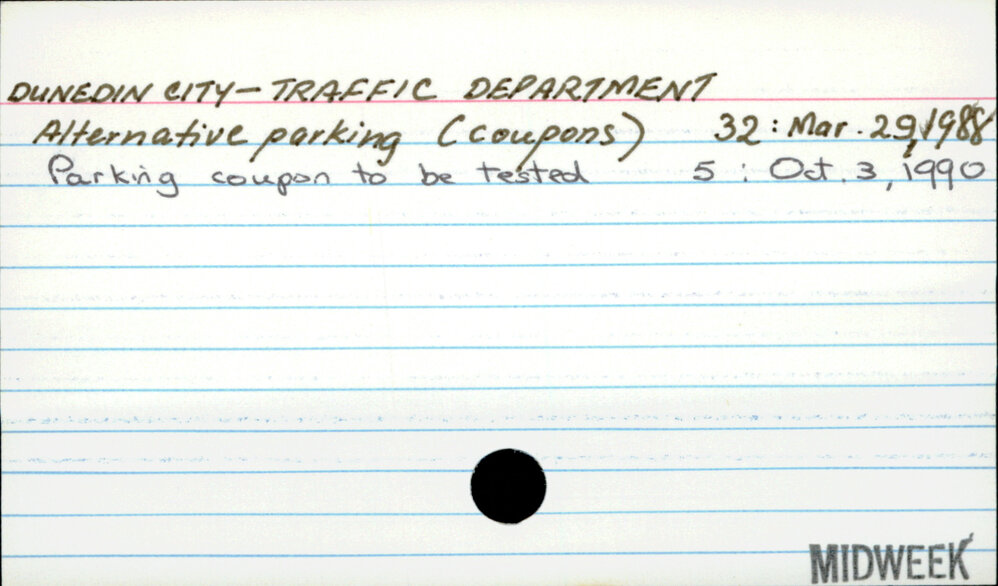 DUNEDIN CITY - TRAFFIC DEPARTMENT
Alternative parking (coupons) 32 : Mar. 29, 1988
Parking coupon to be tested 5 : Oct. 3, 1990
MIDWEEK